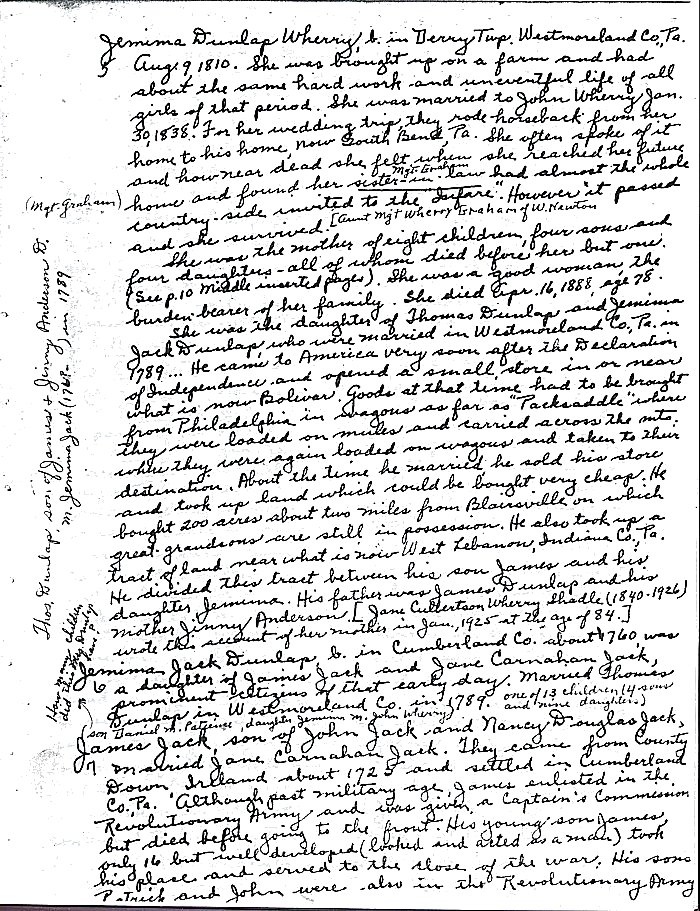 Jemima Dunlap Wherry, b. in Derry Twp. Westmoreland Co., Pa.
5 Aug. 9, 1810. She was brought up on a farm and had
about the same hard work and uneventful life of all
girls of that period. She was married to John Wherry Jan.
30, 1838. For her wedding trip they rode horseback from her
home to his home, now South Bend, Pa. She often spoke of it
and how near dead she felt when she reached her future
Mgt. Graham
(Mgt. Graham) home and found her sister-in-law had almost the whole
country-side invited to the "Infare". However it passed
and she survived. [Aunt Mgt Wherry Graham of W. Newton
She was the mother of eight children, four sons and
four daughters - all of whom died before her but one.
(See p. 10 Middle inserted pages). She was a good woman, the
burden bearer of her family. She died Apr. 16, 1888, age 78.
She was the daughter of Thomas Dunlap and Jemima
Jack Dunlap, who were married in Westmoreland Co., Pa. in
1789... He came to America very soon after the Declaration
of Independence and opened a small store in or near
what is now Bolivar. Goods at that time had to be brought
from Philadelphia in wagons as far as "Packsaddle" where
they were loaded on mules and carried across the mts.
where they were again loaded on wagons and taken to their
destination. About the time he married he sold his store
and took up land which could be bought very cheap. He
bought 200 acres about two miles from Blairsville on which
great-grandsons are still in possession. He also took up a
tract of land near what is now West Lebanon, Indiana Co., Pa.
He divided this tract between his son James and his
daughter Jemima. His father was James Dunlap and his
mother Jinny Anderson. [Jane Culbertson Wherry Shadle (1840-1926)
wrote this account of her mother in Jan., 1925 at the age of 84.]
Jemima Jack Dunlap, b. in Cumberland Co. about 1760, was
6 a daughter of James Jack and Jane Carnahan Jack,
prominent citizens of that early day. Married Thomas
Dunlap in Westmoreland Co. in 1789. one of 13 children (4 sons
and nine daughters)
(son Daniel m. Patience, daughter Jemima m. John Wherry)
James Jack, son of John Jack and Nancy Douglas Jack,
7 married Jane Carnahan Jack. They came from County
Down, Ireland about 1725 and settled in Cumberland
Co., Pa. Although past military age, James enlisted in the
Revolutionary Army and was given a Captain's Commission
but died before going to the front. His young son James,
only 16 but well developed (looked and acted as a man) took
his place and served to the close of the war. His sons
Patrick and John were also in the Revolutionary Army
Thos. Dunlap son of James & Jinny Anderson D.
m. Jemima Jack (1767- ) in 1789
How many children
did this Dunlap
have?